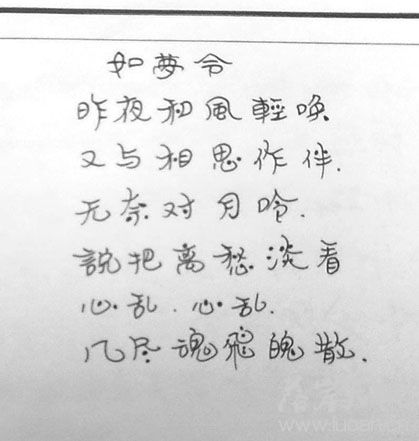 如夢令
昨夜和風輕喚
又与相思作伴.
无奈对月吟.
說把离愁淡看
心乱.心乱.
几尽魂飛魄散.